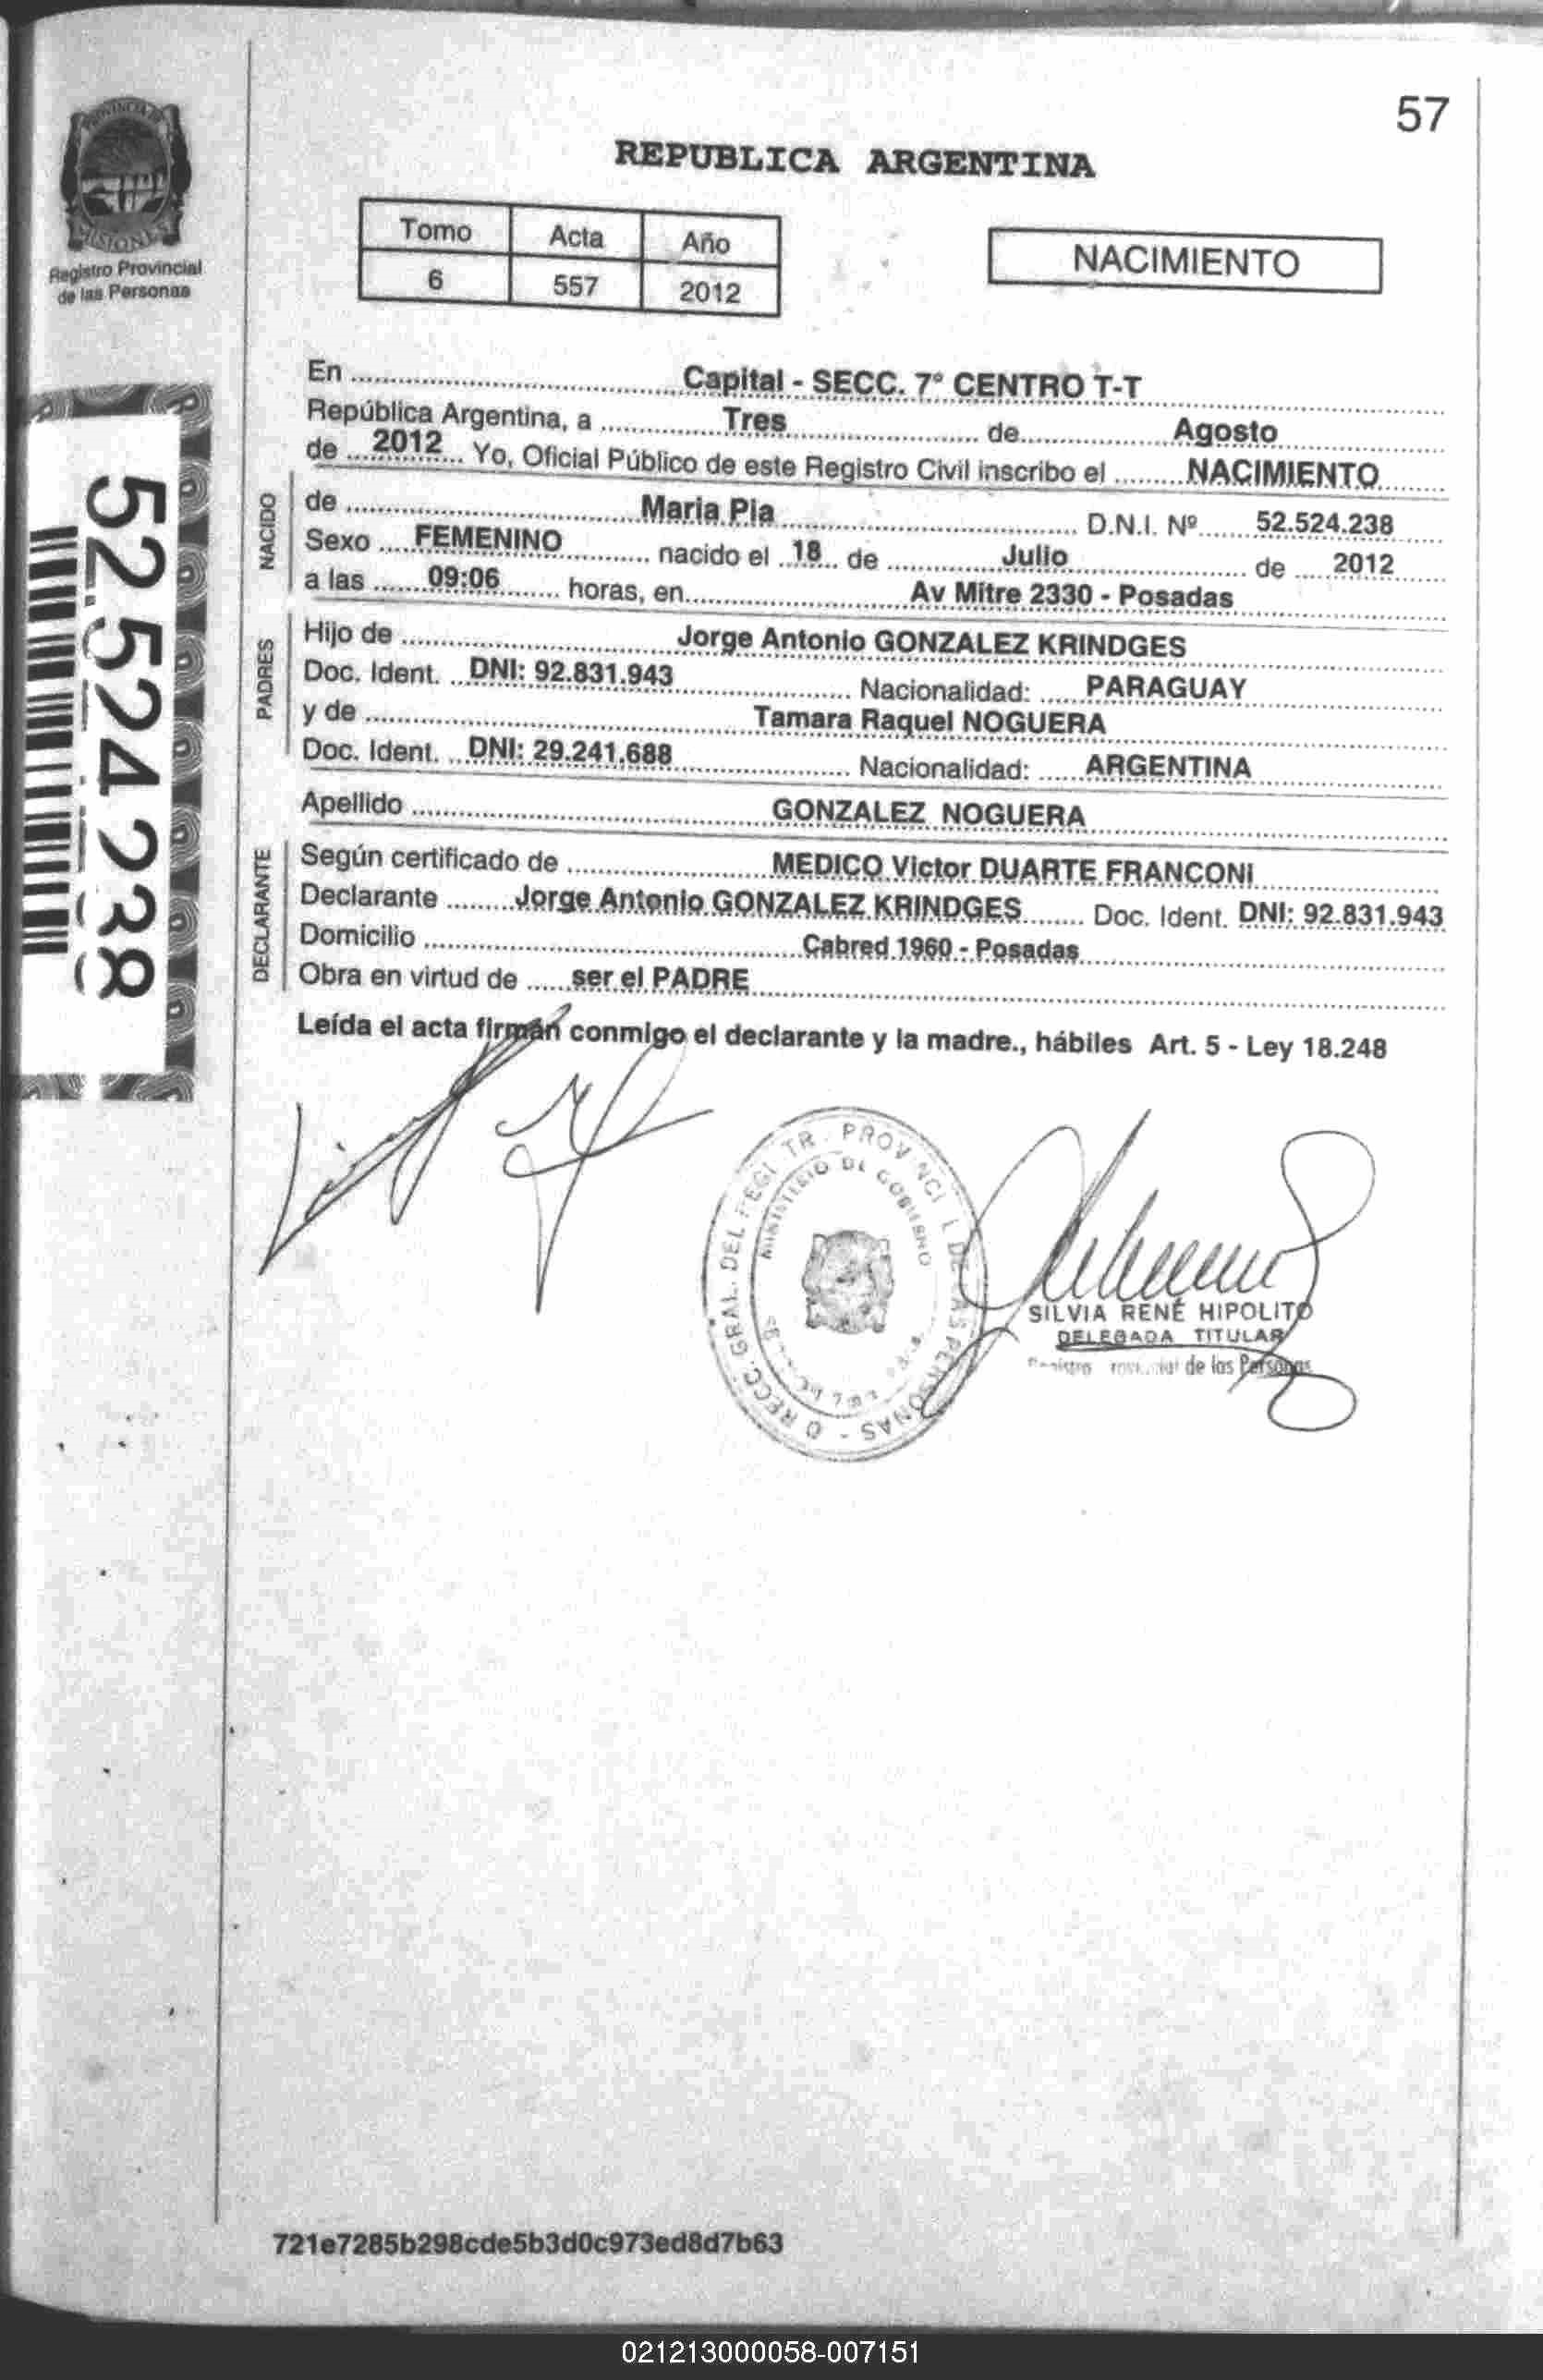 57
REPUBLICA ARGENTINA
PROVINCIA DE
MISIONES
Registro Provincial
de las Personas
Tomo Acta Año
6 557 2012
NACIMIENTO
52.524.238
En Capital - SECC. 7° CENTRO T-T
República Argentina, a Tres de Agosto
de 2012 Yo, Oficial Público de este Registro Civil inscribo el NACIMIENTO
NACIDO
de Maria Pia D.N.I. Nº 52.524.238
Sexo FEMENINO nacido el 18 de Julio de 2012
a las 09:06 horas, en Av Mitre 2330 - Posadas
PADRES
Hijo de Jorge Antonio GONZALEZ KRINDGES
Doc. Ident. DNI: 92.831.943 Nacionalidad: PARAGUAY
y de Tamara Raquel NOGUERA
Doc. Ident. DNI: 29.241.688 Nacionalidad: ARGENTINA
Apellido GONZALEZ NOGUERA
DECLARANTE
Según certificado de MEDICO Victor DUARTE FRANCONI
Declarante Jorge Antonio GONZALEZ KRINDGES Doc. Ident. DNI: 92.831.943
Domicilio Cabred 1960 - Posadas
Obra en virtud de ser el PADRE
Leída el acta firmán conmigo el declarante y la madre., hábiles Art. 5 - Ley 18.248
MINISTERIO DE GOBIERNO
SILVIA RENÉ HIPOLITO
DELEGADA TITULAR
de las Personas
721e7285b298cde5b3d0c973ed8d7b63
021213000058-007151